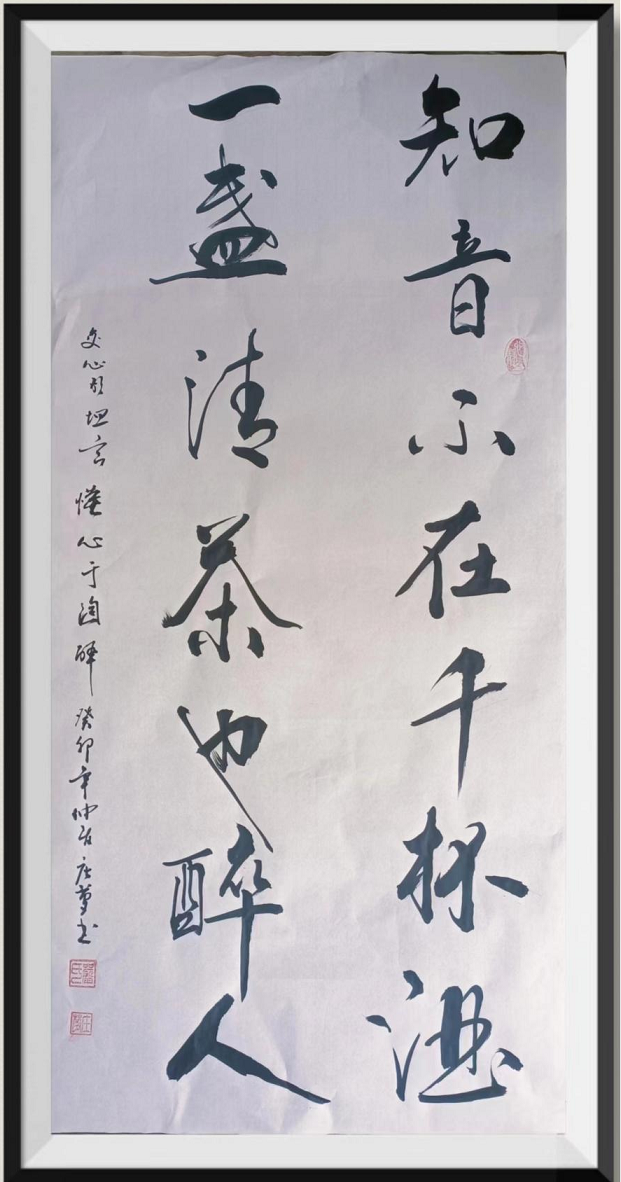 知音不在千杯酒
一盏清茶也醉人
交心坦言 心于陶醉 癸卯年仲 庄 书